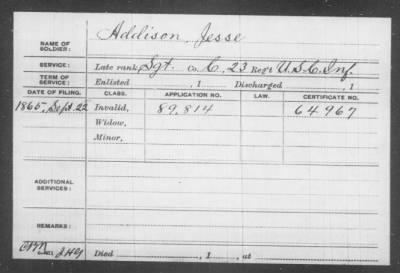 NAME OF SOLDIER: Addison, Jesse
SERVICE: Late rank Sgt. Co. C, 23 Reg't U.S.C. Inf.
TERM OF SERVICE: Enlisted , 1 Discharged , 1
DATE OF FILING. CLASS. APPLICATION NO. LAW. CERTIFICATE NO.
1865, Sept. 22 Invalid, 89,814 64967
Widow,
Minor,
ADDITIONAL SERVICES:
REMARKS:
Died , 1 , at